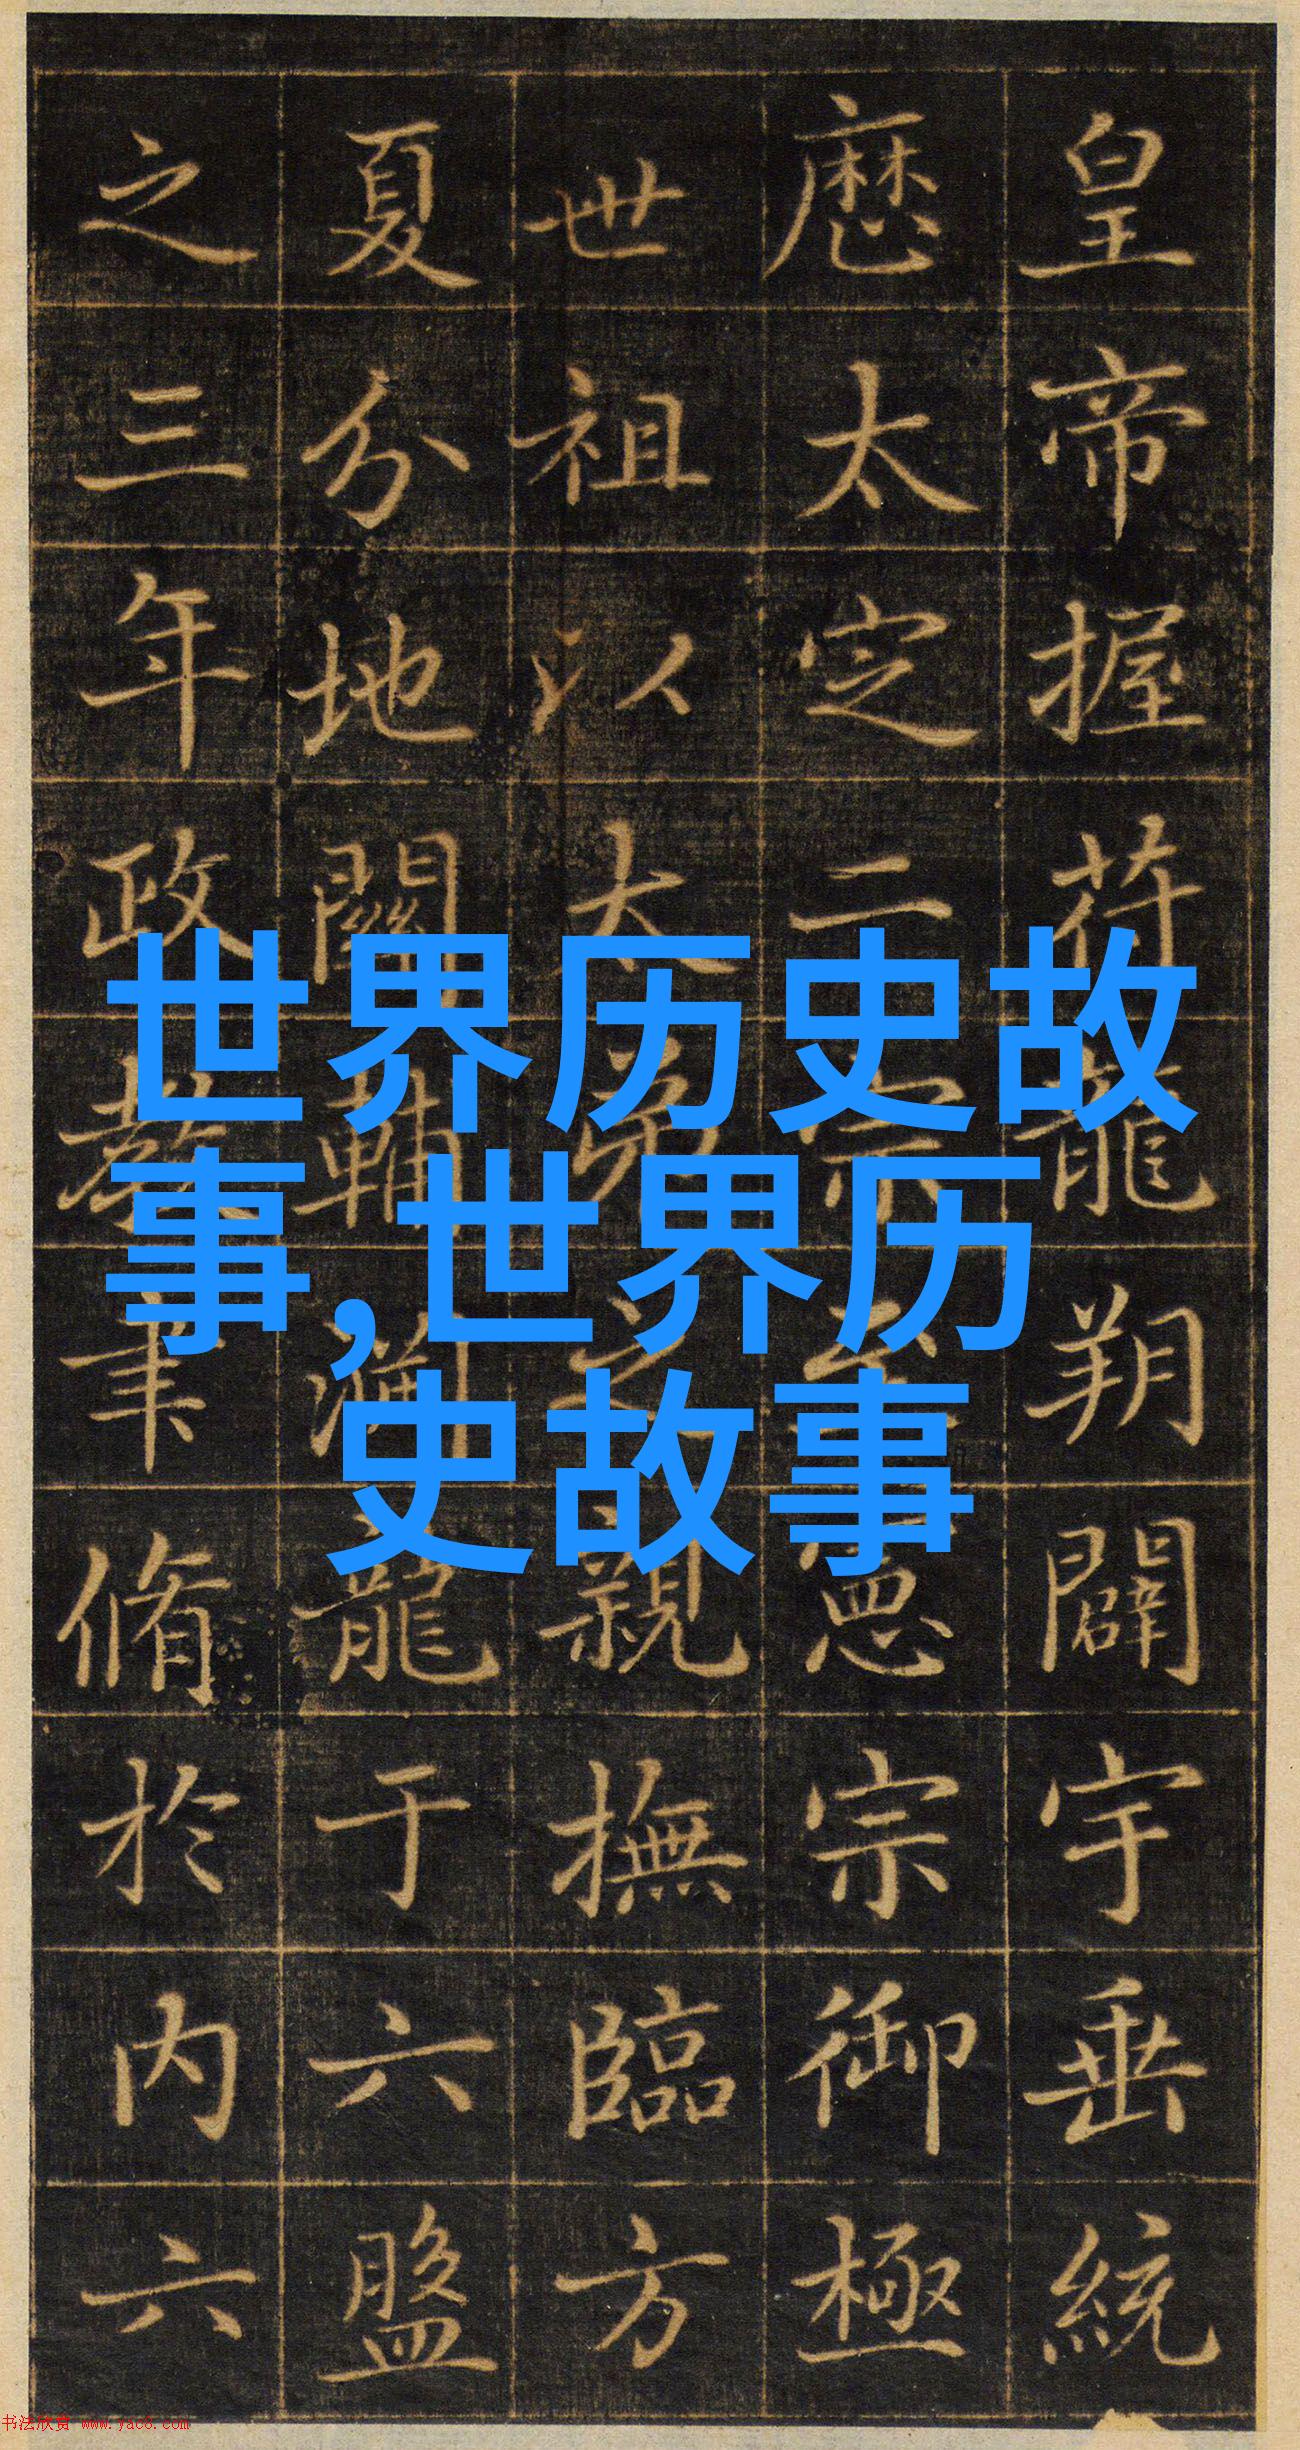 皇帝握符龍朔闢宇垂統
厯太定二宗至憲宗御極
世祖以太弟之親撫臨方
夏分地關輔龍于六盤
之三年政教聿脩於内六
世界历史故
事,世界历
史故事
书法欣赏 www.yac8.com